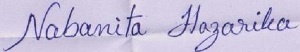 Nabanita Hazarika